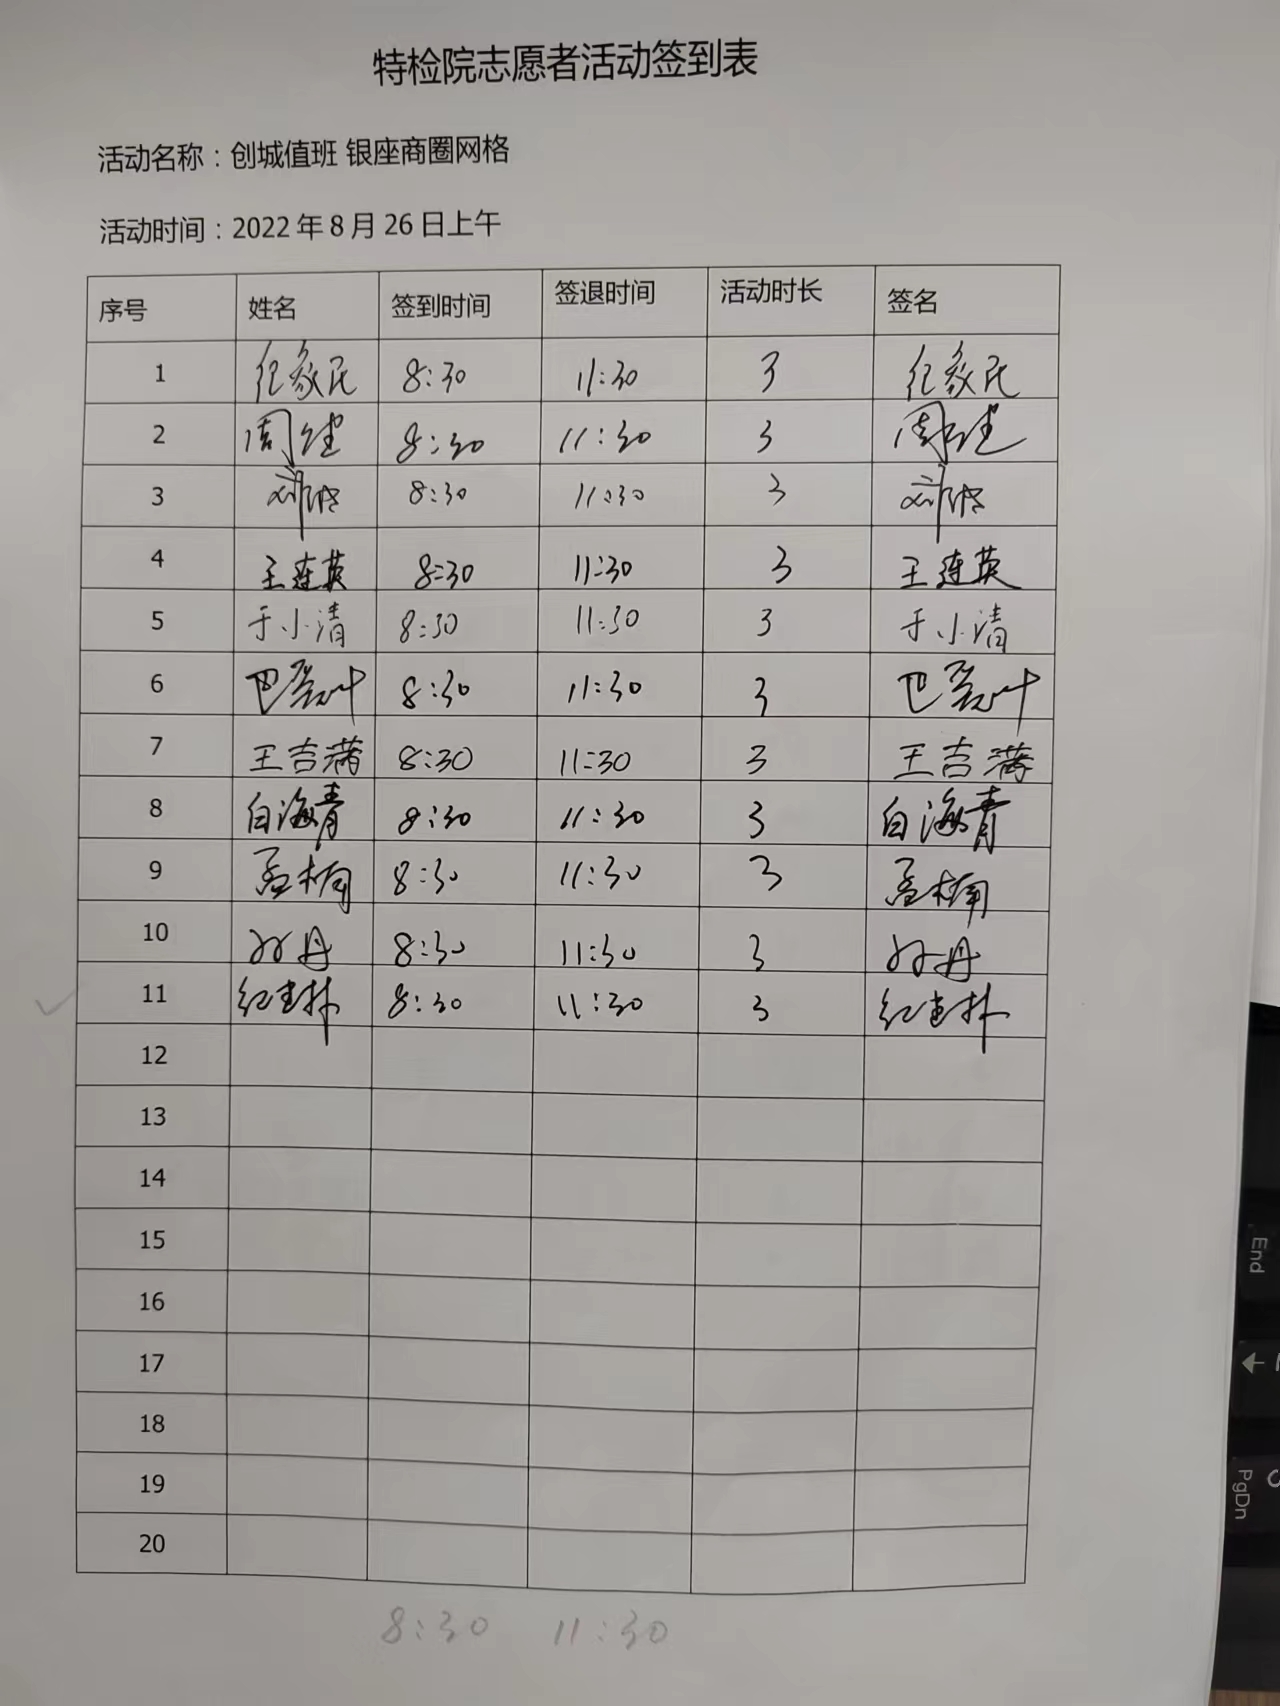 特检院志愿者活动签到表
活动名称：创城值班 银座商圈网格
活动时间：2022年8月26日上午
序号 姓名 签到时间 签退时间 活动时长 签名
1 8:30 11:30 3
2 周健 8:30 11:30 3 周健
3 8:30 11:30 3
4 王连英 8:30 11:30 3 王连英
5 于小清 8:30 11:30 3 于小清
6 8:30 11:30 3
7 王吉满 8:30 11:30 3 王吉满
8 白海青 8:30 11:30 3 白海青
9 孟楠 8:30 11:30 3 孟楠
10 孙丹 8:30 11:30 3 孙丹
11 8:30 11:30 3
12
13
14
15
16
17
18
19
20
8:30 11:30
End
PgDn